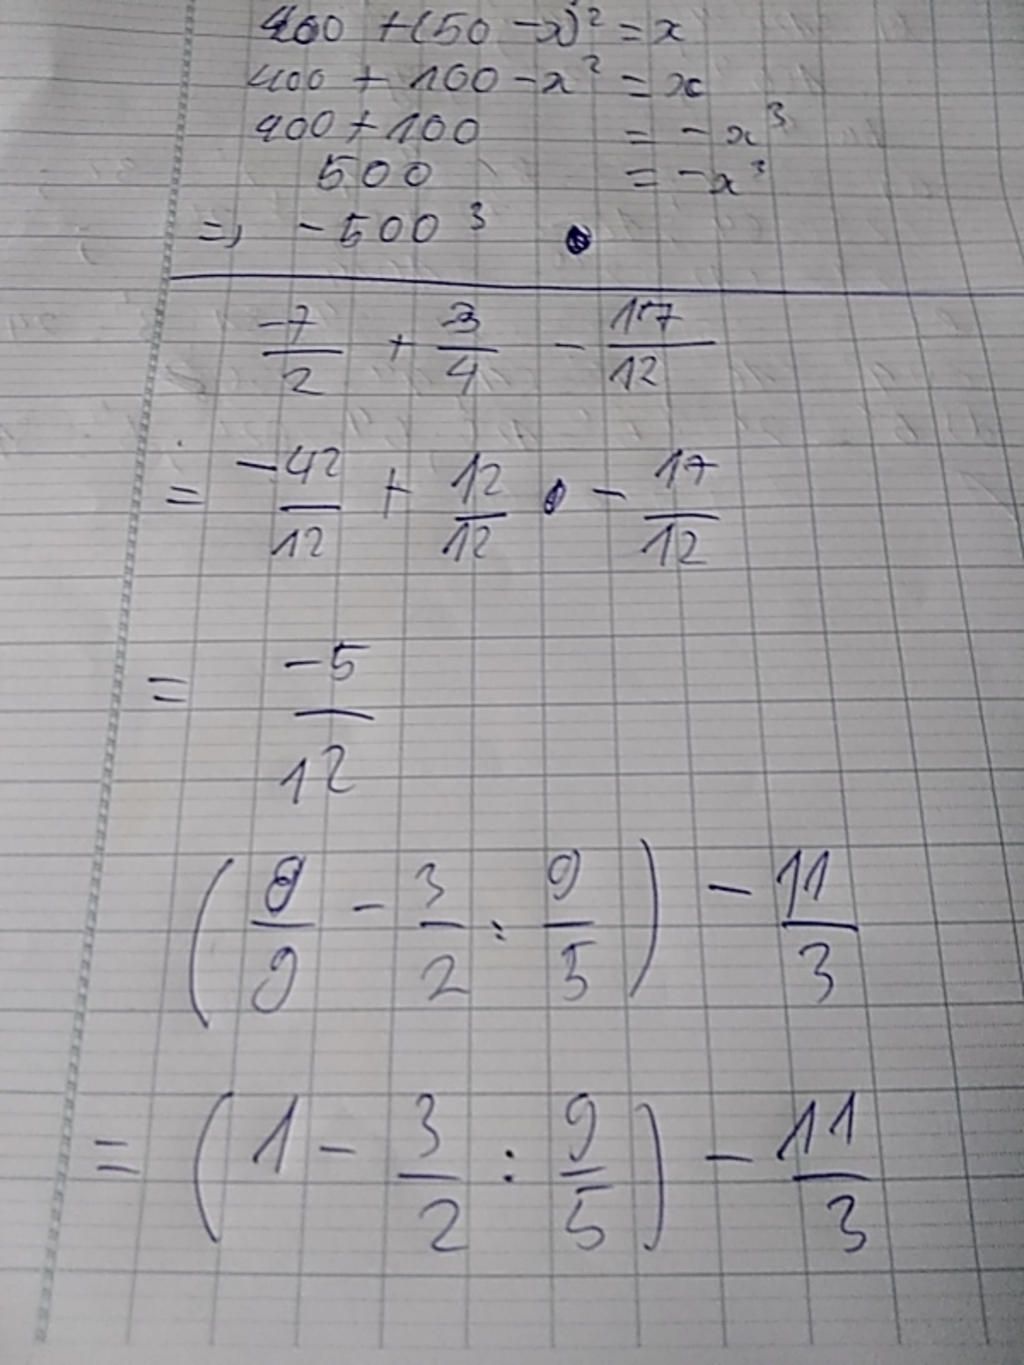 400 + (50 - x)² = x
400 + 100 - x² = x
400 + 100 = - x³
500 = - x³
=> - 500³
-7/2 + 3/4 - 17/12
= -42/12 + 12/12 - 17/12
= -5/12
(8/9 - 3/2 : 9/5) - 11/3
= (1 - 3/2 : 9/5) - 11/3